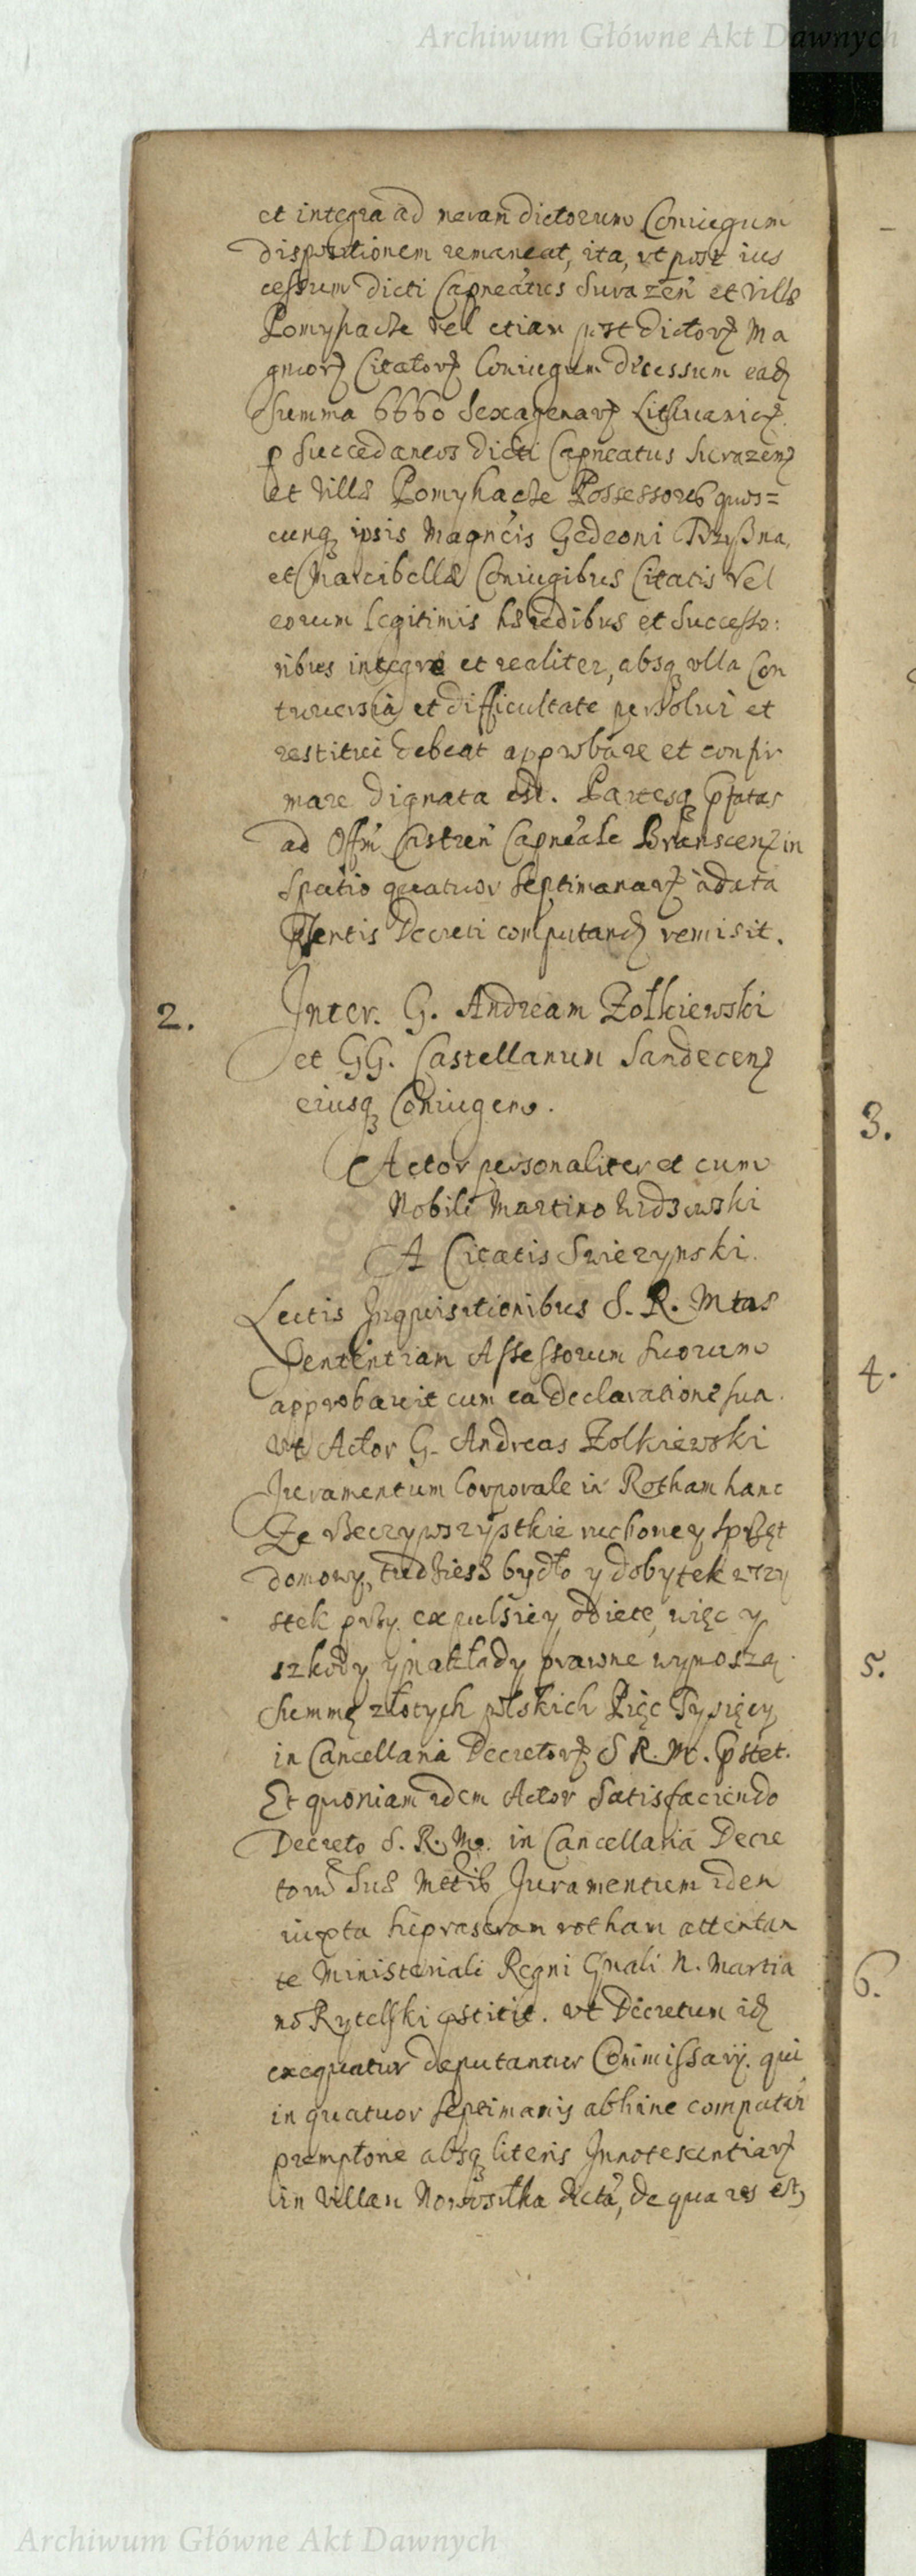 Archiwum Główne Akt Dawnych
et integra ad nevan dictorum Coniugum
dispositionem remaneat, ita, vt post ius
cessum dicti Capneatus Surazen et villæ
Pomyhacze vel etiam post dictorꝝ Ma
gnicorꝝ Citatorꝝ Coniugum decessum eadꝫ
Summa 6660 Sexagenarꝝ Lithuanicꝝ
ꝑ Succedaneos dicti Capneatus Surazenꝫ
et Villæ Pomyhacze Possessores quos=
cunqꝫ ipsis Magncis Gedeoni
et Marcibellæ Coniugibus Citatis vel
eorum legitimis hæredibus et Successo:
ribus integre et realiter, absqꝫ vlla Con
trouersia et difficultate persolui et
restitui debeat approbare et confir
mare dignata est. Partesqꝫ pfatas
ad Offm Castren Capneale Branscenꝫ in
Spatio quatuor Septimanarꝝ a data
Pñtis Decreti computandꝫ remisit.
2. Inter. G. Andream Żołkiewski
et GG. Castellanum Sandecenꝫ
eiusqꝫ Coniugem.
Actor personaliter et cum
Nobili Martino
A Citatis Swiezynski.
Lectis Inquisitionibus S. R. Mtas
Sententiam Assessorum suorum
approbauit cum ea declaratione sua.
Vt Actor G. Andreas Zolkiewski
Iuramentum Corporale in Rotham hanc
Że Rzeczy wszystkie ruchome y sprzęt
domowy, tudziesz bydło y dobytek wszy
stek przy expulsiey odięte, więc y
szkody y nakłady prawne wynoszą
Summę złotych polskich Pięc Tysięcy
in Cancellaria Decretorꝝ S R. M. pstet.
Et quoniam idem Actor Satisfaciendo
Decreto S. R. M. in Cancellaria Decre
torum Suæ Mttis Iuramentum idem
iuxta supraseram rotham attentan
te Ministeriali Regni Gnali N. Martia
no Rytelski pstitit. vt Decretum idꝫ
exequatur deputantur Commissarij. qui
in quatuor septimanis abhinc computan
premptorie absqꝫ literis Innotescentiarꝝ
in villam Nowosiłka dicta, de qua res est,
3.
4.
5.
6.
Archiwum Główne Akt Dawnych